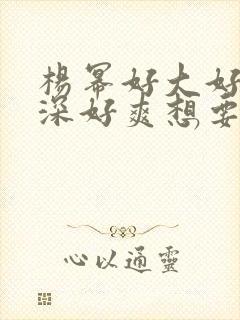 楊幂好大好
深好爽想要
心以通靈